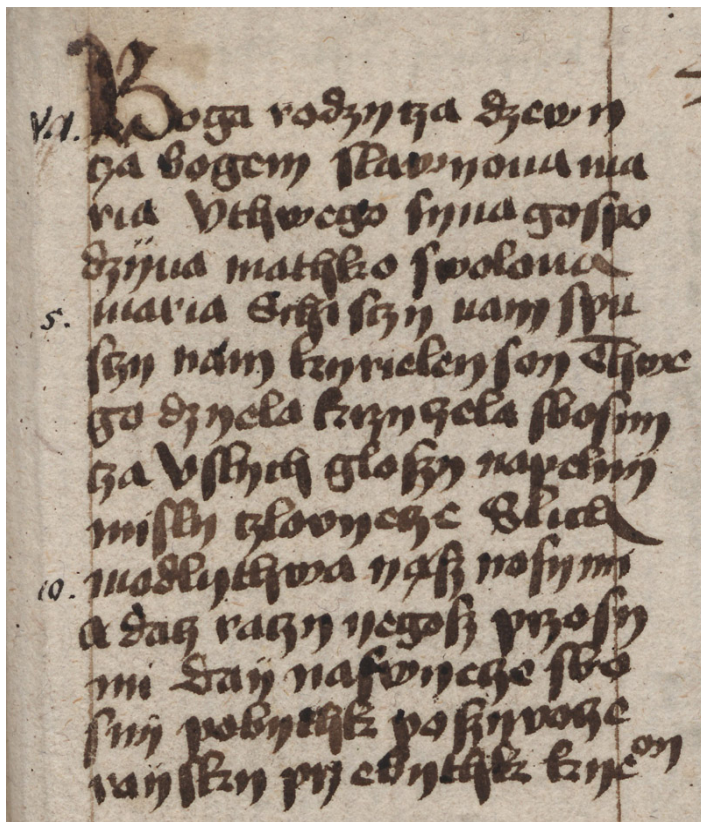 Va. Boga rodzycza dzewy
cza bogem slawyona ma
ria Vthwego syna gospo
dzijna mathko swolona
5. maria Schisczy nam spu
sczy nam kyrieleyson Thwe
go dzyela krzyczela sbosny
cza Vslych glossy napelny
missly czlovyecze Slich
10. modlythwa yąsz nosymi
a dacz raczy yegosz przosy
mi daij naswyecze sbo
sny pobythk posziwocze
rayski przebythk kyreon